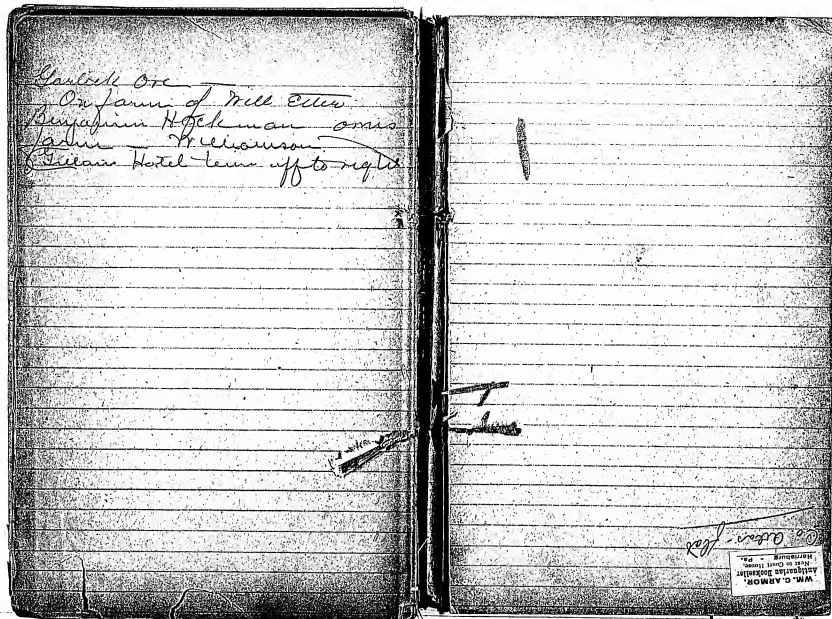 Ore
On farm of Will Etter
Benjamin Hockman owns
farm — Williamson
Hotel turn off to right
WM. C. ARMOR,
Antiquarian Bookseller
Next to Court House,
Harrisburg - Pa.